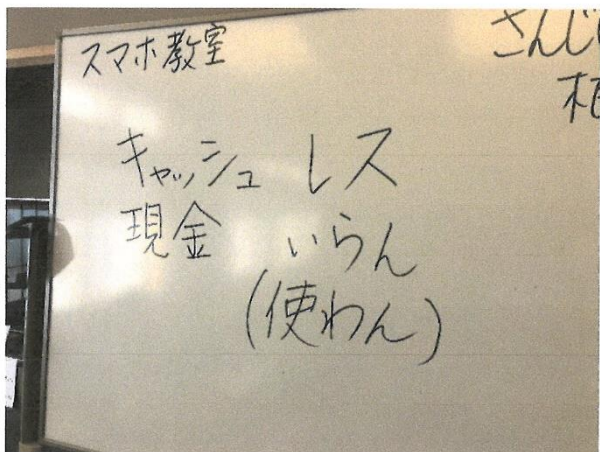 スマホ教室
さんじ
キャッシュ レス
現金 いらん
(使わん)